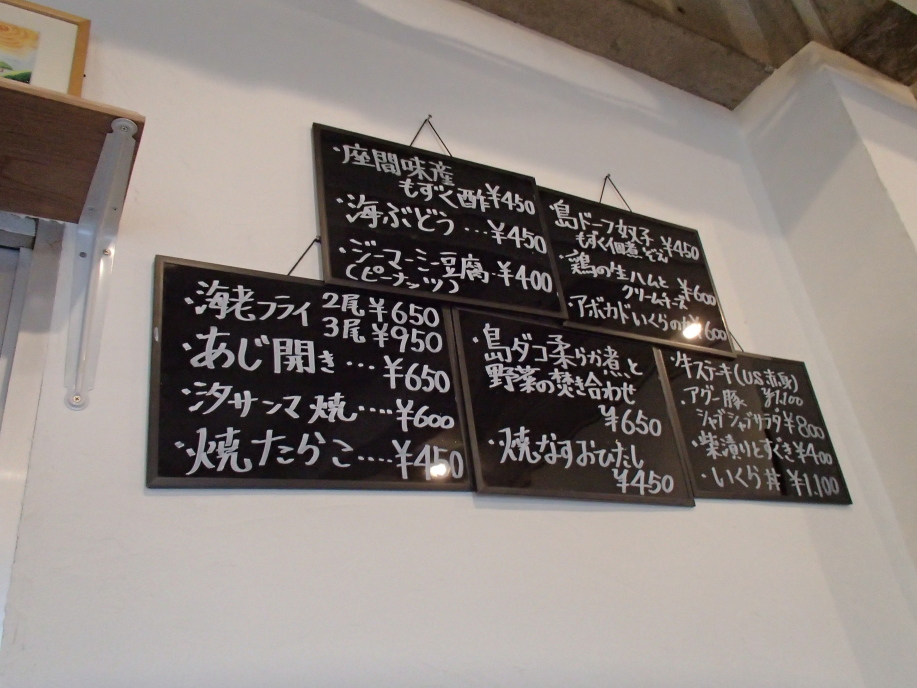 ・座間味産
もずく酢¥450
・海ぶどう…¥450
・ジーマーミ豆腐・¥400
(ピーナッツ)
・島ドーフ奴子
もずく佃煮・ぞえ ¥450
・鶏の生ハムと
クリームチーズ ¥600
・アボカドいくらの ¥600
・海老フライ 2尾 ¥650
3尾 ¥950
・あじ開き…¥650
・汐サンマ焼….¥600
・焼たらこ….¥450
・島ダコ柔らか煮と
野菜の焚き合わせ
¥650
・焼なすおひたし
¥450
・牛ステーキ(US赤身)
¥1,100
・アグー豚と
シャブシャブサラダ¥800
・柴漬りとすぐき¥400
・いくら丼 ¥1,100